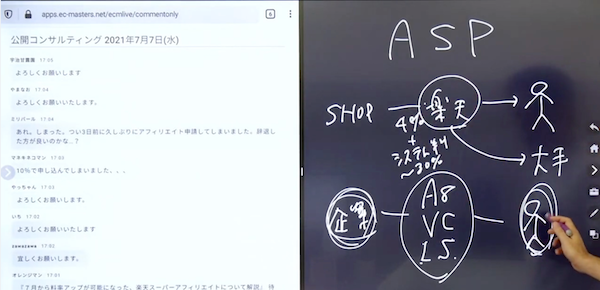 apps.ec-masters.net/ecmlive/commentonly
6
公開コンサルティング 2021年7月7日(水)
17:05
よろしくお願いします
やまなお 17:04
よろしくお願いいたします。
ミリバール 17:04
あれ。しまった。つい3日前に久しぶりにアフィリエイト申請してしまいました。辞退し
た方が良いのかな..?
マネキネコマン 17:03
10%で申し込んでしまいました、、、
やっちゃん 17:03
よろしくお願します。
いち 17:03
よろしくお願いいたします
zawazawa 17:03
宜しくお願いします。
オレンジマン 17:01
「7月から料率アップが可能になった、楽天スーパーアフィリエイトについて解説」 待
ASP
SHOP
楽天
4%
+
システム料
~30%
大手
企業
A8
VC
LS.